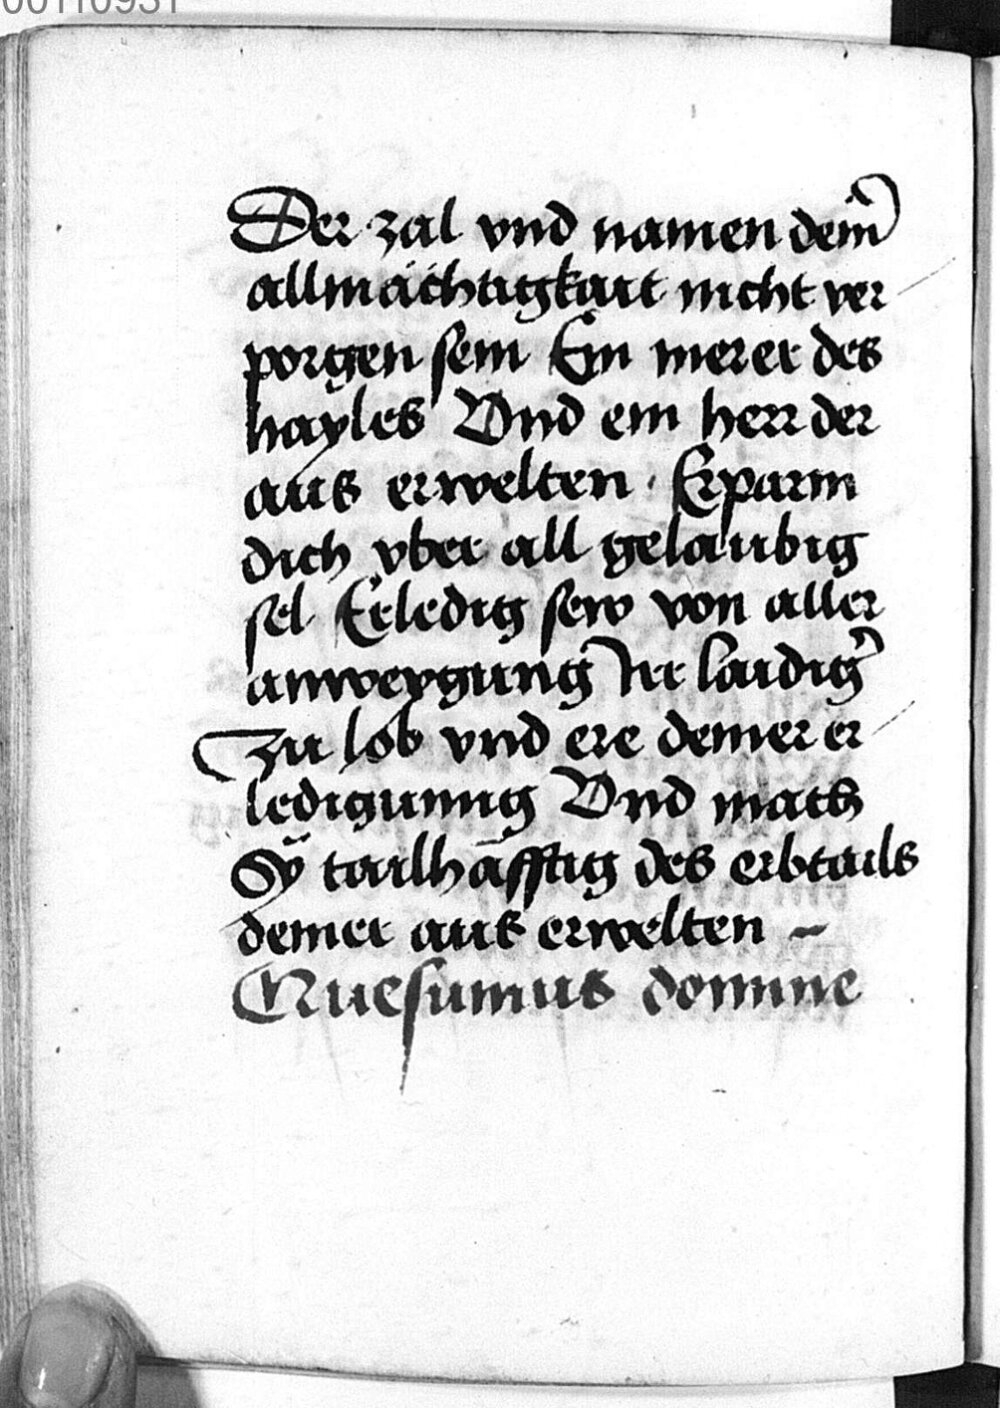 00110931
Der zal vnd namen dein̄
allmächtigkait nicht ver
porgen sein Ein merer des
hayles Vnd ein herr der
aus erwelten · Erparm
dich vber all gelaubig
sel Erledig sew von aller
anweygung Irr laidig̉
Zu lob vnd ere deiner er
ledigunng Vnd mach
Sÿ tailhäfftig des erbtails
deiner aus erwelten ~
Quesumus domine